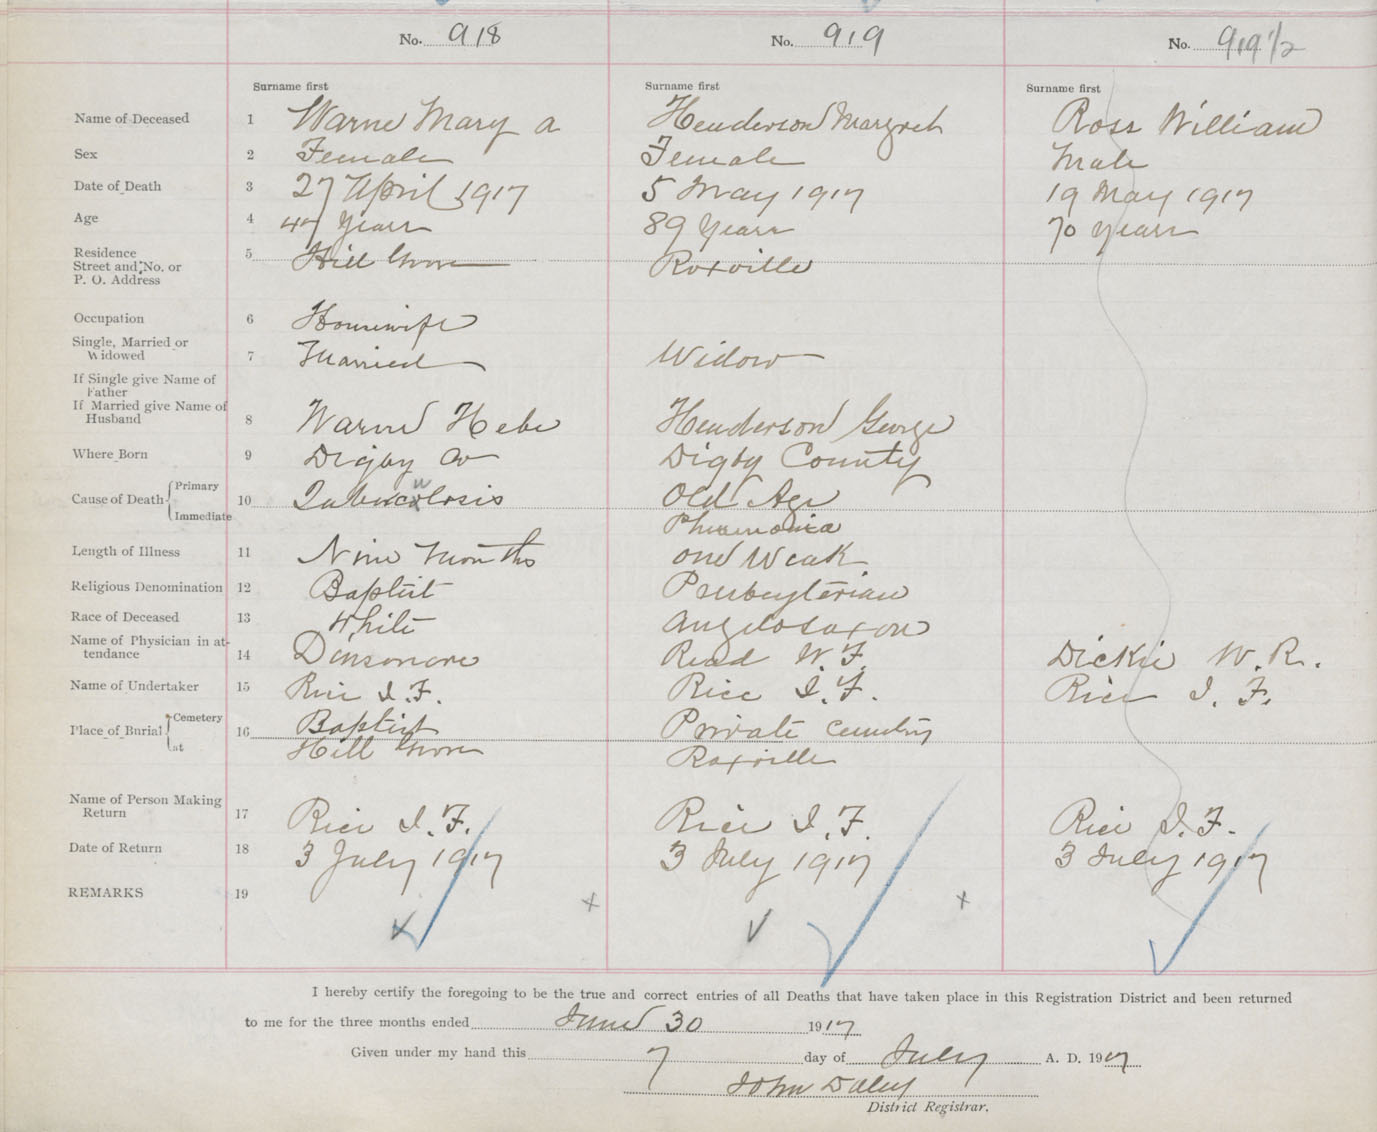 No. 918 No. 919 No. 919 1/2
Surname first Surname first Surname first
Name of Deceased 1 Warne Mary a Henderson Margret Ross William
Sex 2 Female Female Male
Date of Death 3 27 April 1917 5 May 1917 19 May 1917
Age 4 47 Years 89 Years 70 years
Residence
Street and No. or 5 Hill Grove Roxville
P. O. Address
Occupation 6 Housewife
Single, Married or
Widowed 7 Married Widow
If Single give Name of
Father
If Married give Name of
Husband 8 Warne Hebe Henderson George
Where Born 9 Digby Co Digby County
Primary
Cause of Death 10 Tubuculosis Old Age
Immediate Phumonica
Length of Illness 11 Nine Months one Weak
Religious Denomination 12 Baptist Presbyterian
Race of Deceased 13 White Anglosaxon
Name of Physician in at-
tendance 14 Dinsmore Read W. F. Dickie W. R.
Name of Undertaker 15 Rice I. F. Rice I. F. Rice I. F.
Cemetery
Place of Burial 16 Baptist Private Cemetry
at Hill Grove Roxville
Name of Person Making
Return 17 Rice I. F. Rice I. F. Rice I. F.
Date of Return 18 3 July 1917 3 July 1917 3 July 1917
REMARKS 19
I hereby certify the foregoing to be the true and correct entries of all Deaths that have taken place in this Registration District and been returned
to me for the three months ended June 30 1917
Given under my hand this 7 day of July A. D. 1917
John Daley
District Registrar.